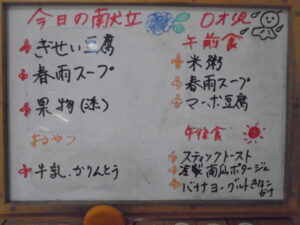 今日の献立
ぎせい豆腐
春雨スープ
果物(漆)
おやつ
牛乳.かりんとう
0才児
午前食
米粥
春雨スープ
マーボ豆腐
午後食
スティックトースト
南瓜ポタージュ
バナナヨーグルトきなこがけ